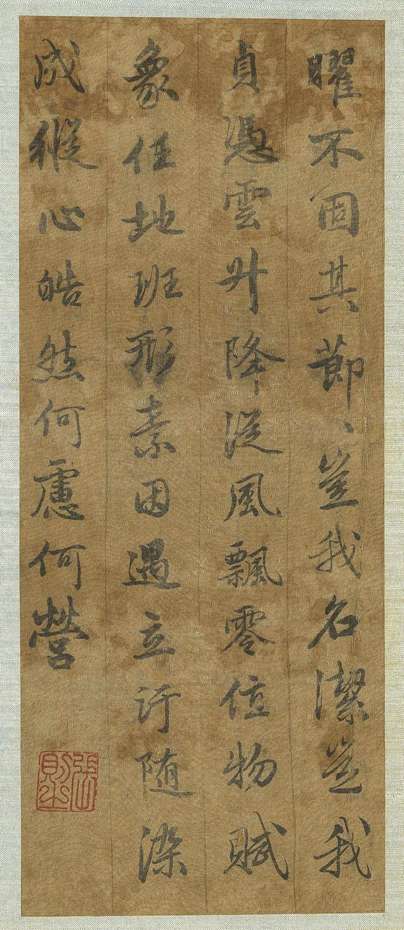 曜不固其節、豈我名潔豈我
貞憑雲升降從風飄零值物賦
象任地班形素因遇立汙随染
成縱心皓然何慮何營
張則之